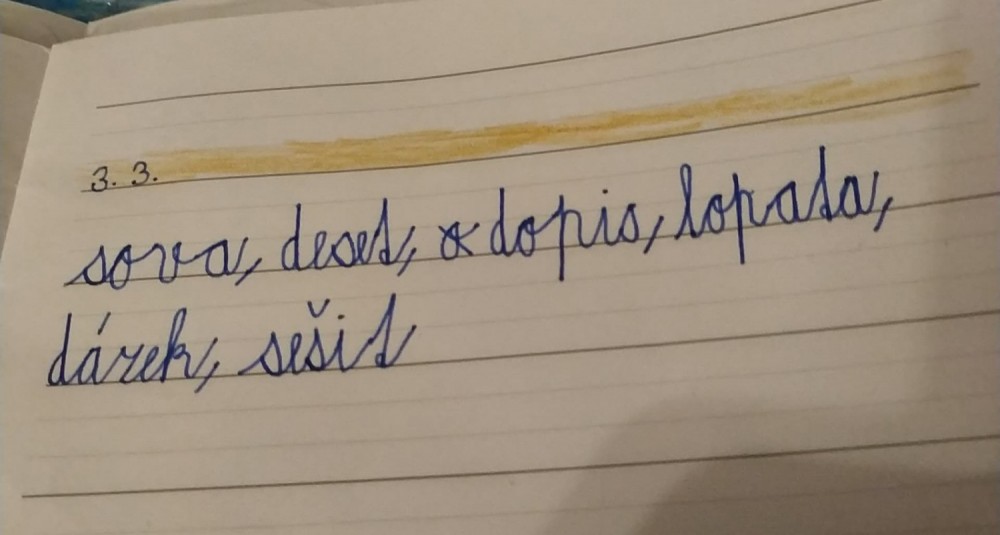 3. 3.
sova, deset, dopis, lopata,
dárek, sešit